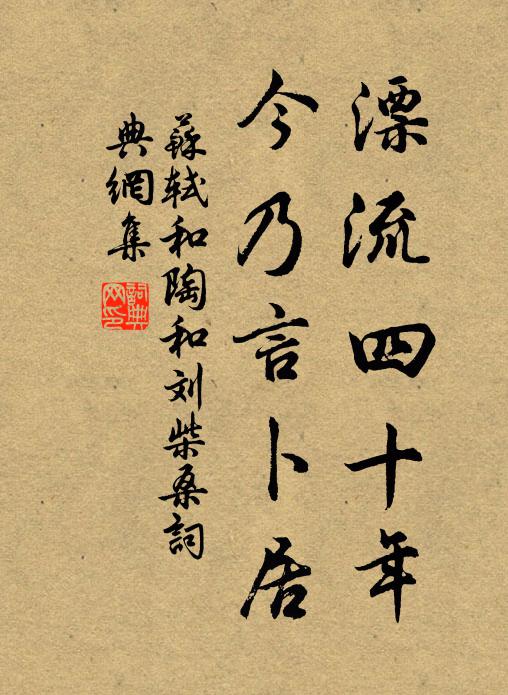 漂流四十年
今乃言卜居
蘇軾和陶和刘柴桑詞
典網集
詞典
网印